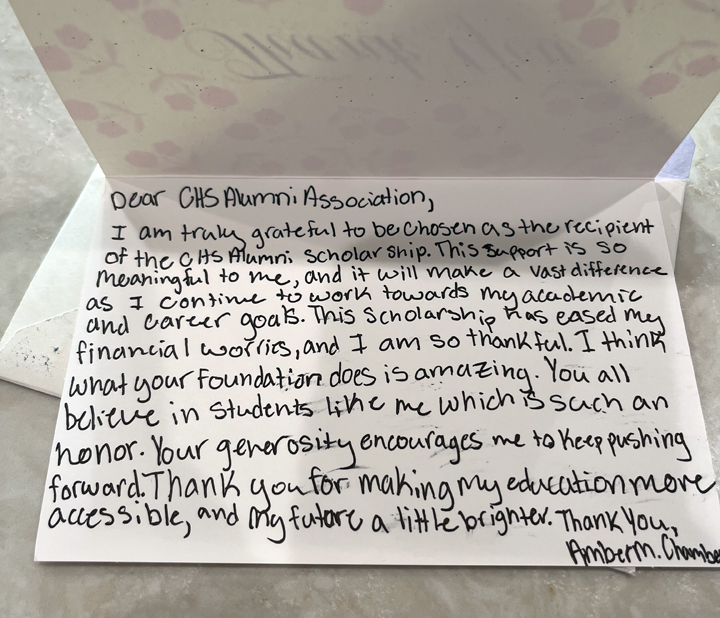 Thank You
Dear CHS Alumni Association,
I am truly grateful to be chosen as the recipient
of the CHS Alumni Scholarship. This support is so
meaningful to me, and it will make a vast difference
as I continue to work towards my academic
and career goals. This Scholarship has eased my
financial worries, and I am so thankful. I think
what your foundation does is amazing. You all
believe in students like me which is such an
honor. Your generosity encourages me to keep pushing
forward. Thank you for making my education more
accessible, and my future a little brighter. Thank You,
Amber M.